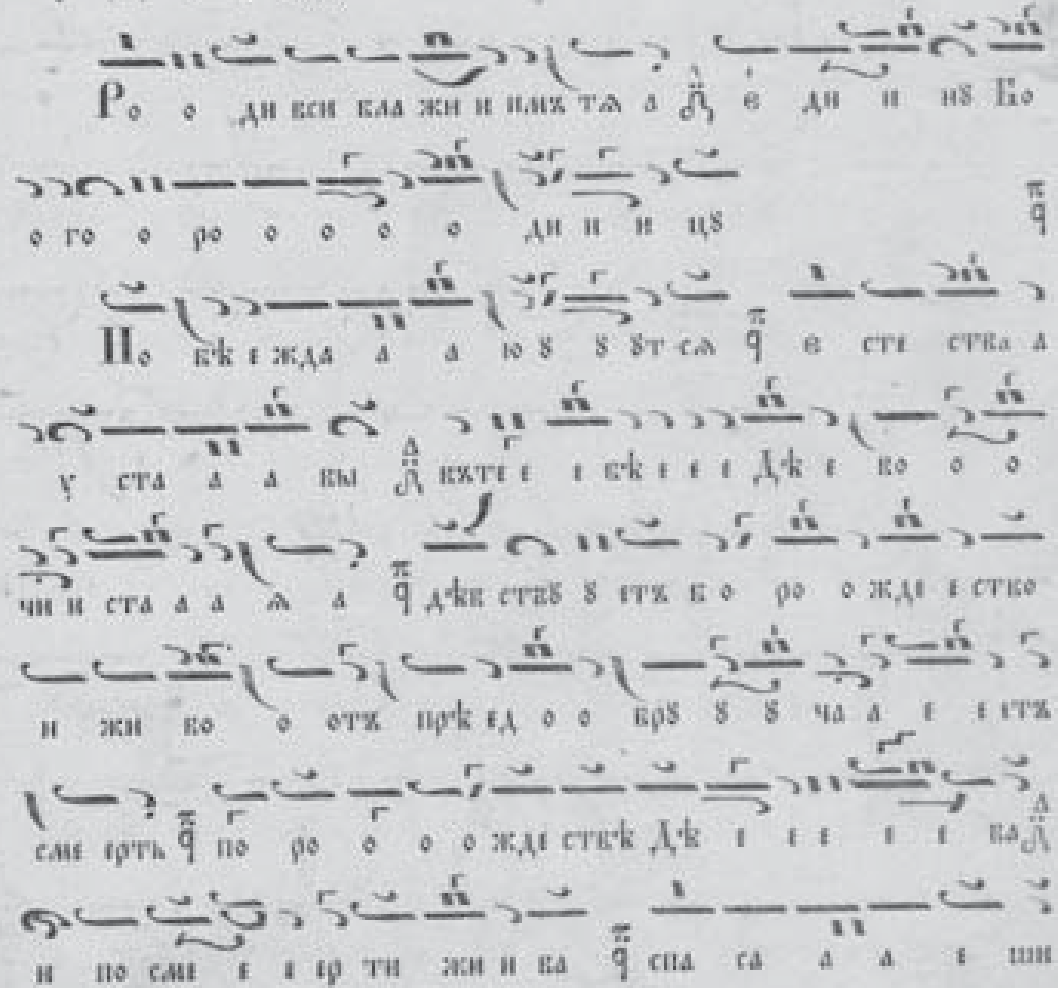 Ро о ди вси бла жи и имъ тѧ а е ди и нꙋ Бо
о го о ро о о о о ди и и цꙋ
По бѣ е жда а а ю ꙋ ꙋ ꙋт сѧ е сте ства а
у ста а а вы въ те е е бѣ е е е Дѣ е во о о
чи и ста а а ѧ а дѣв ствꙋ ꙋ етъ бо ро о жде е ство
и жи во о отъ прѣ ед о о брꙋ ꙋ ꙋ ча а е е етъ
сме ерть по ро о о о жде ствѣ Дѣ е е е е е ва
и по сме е е ер ти жи и ва спа са а а е ши